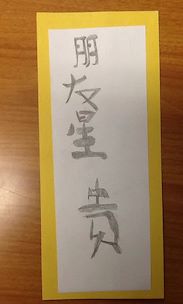 朋友星贵